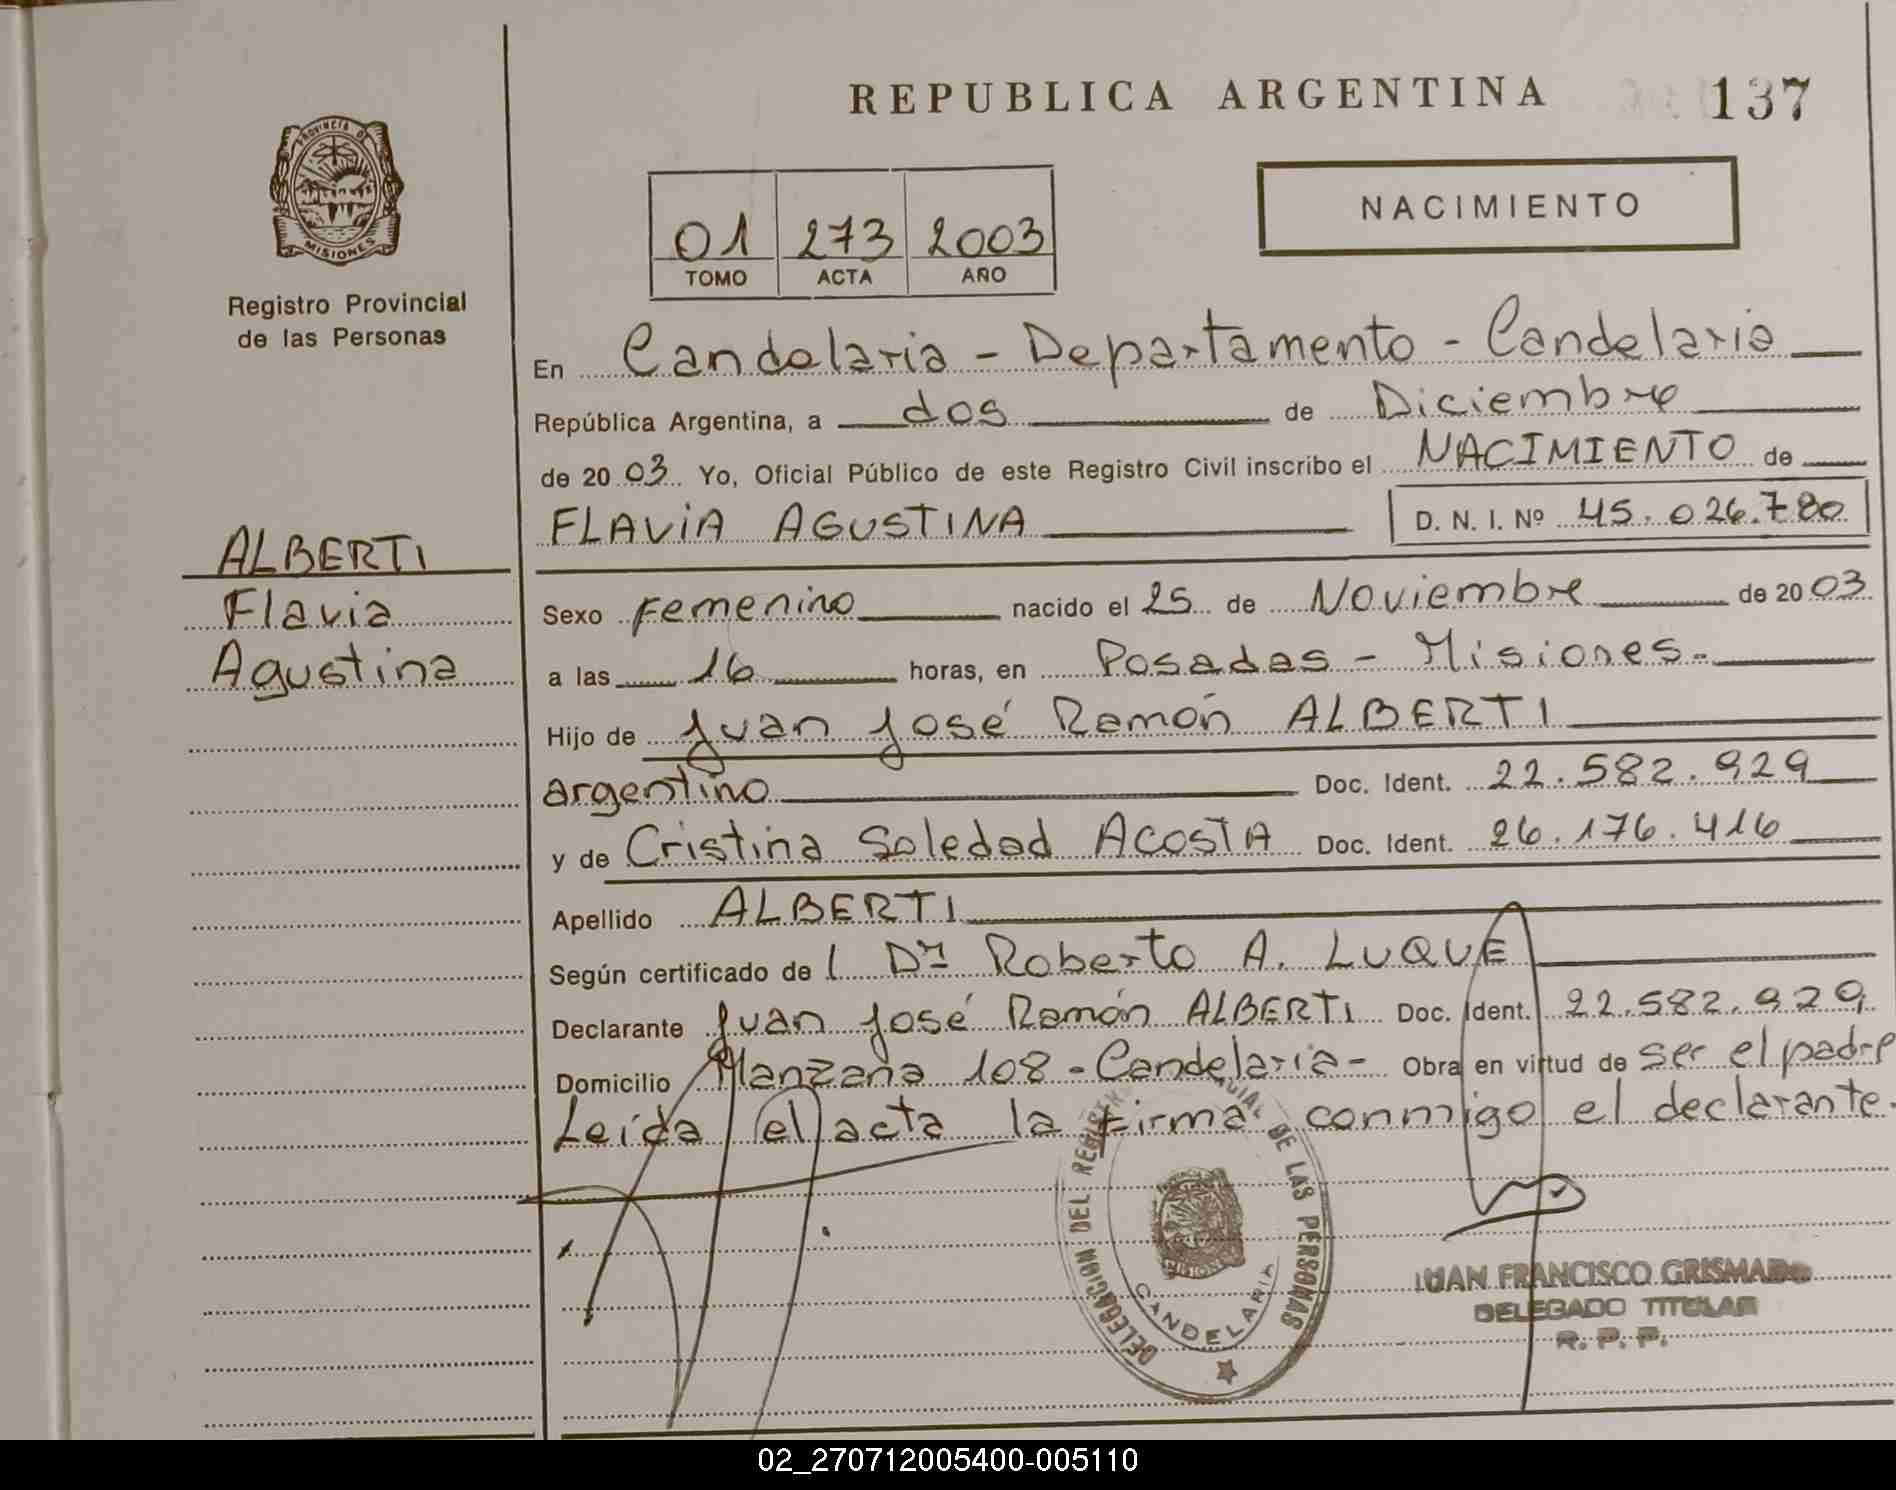 REPUBLICA ARGENTINA 137
PROVINCIA DE
MISIONES
Registro Provincial
de las Personas
NACIMIENTO
01 273 2003
TOMO ACTA AÑO
En Candelaria - Departamento - Candelaria
República Argentina, a dos de Diciembre
de 2003 Yo, Oficial Público de este Registro Civil inscribo el NACIMIENTO de
FLAVIA AGUSTINA D. N. I. Nº 45.026.780
ALBERTI
Flavia
Agustina
Sexo Femenino nacido el 25 de Noviembre de 2003
a las 16 horas, en Posadas - Misiones.-
Hijo de Juan José Ramón ALBERTI
argentino Doc. Ident. 22.582.929
y de Cristina Soledad ACOSTA Doc. Ident. 26.176.416
Apellido ALBERTI
Según certificado de l Dr Roberto A. LUQUE
Declarante Juan José Ramón ALBERTI Doc. Ident. 22.582.929
Domicilio Manzana 108 - Candelaria - Obra en virtud de ser el padre
Leída el acta la firma conmigo el declarante.
DELEGACION DEL REGISTRO PROVINCIAL DE LAS PERSONAS
MISIONES
CANDELARIA
JUAN FRANCISCO GRISMADO
DELEGADO TITULAR
R. P. P.
02_270712005400-005110